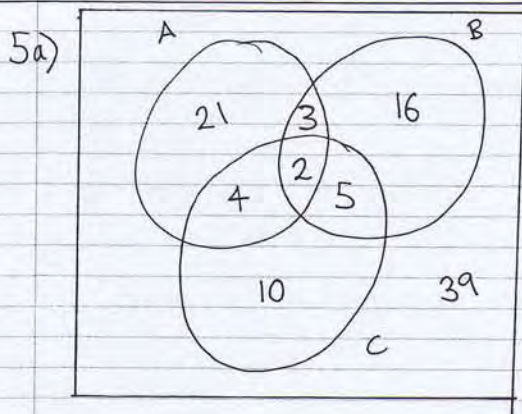 5a)
A
B
21
3
16
2
4
5
10
39
C